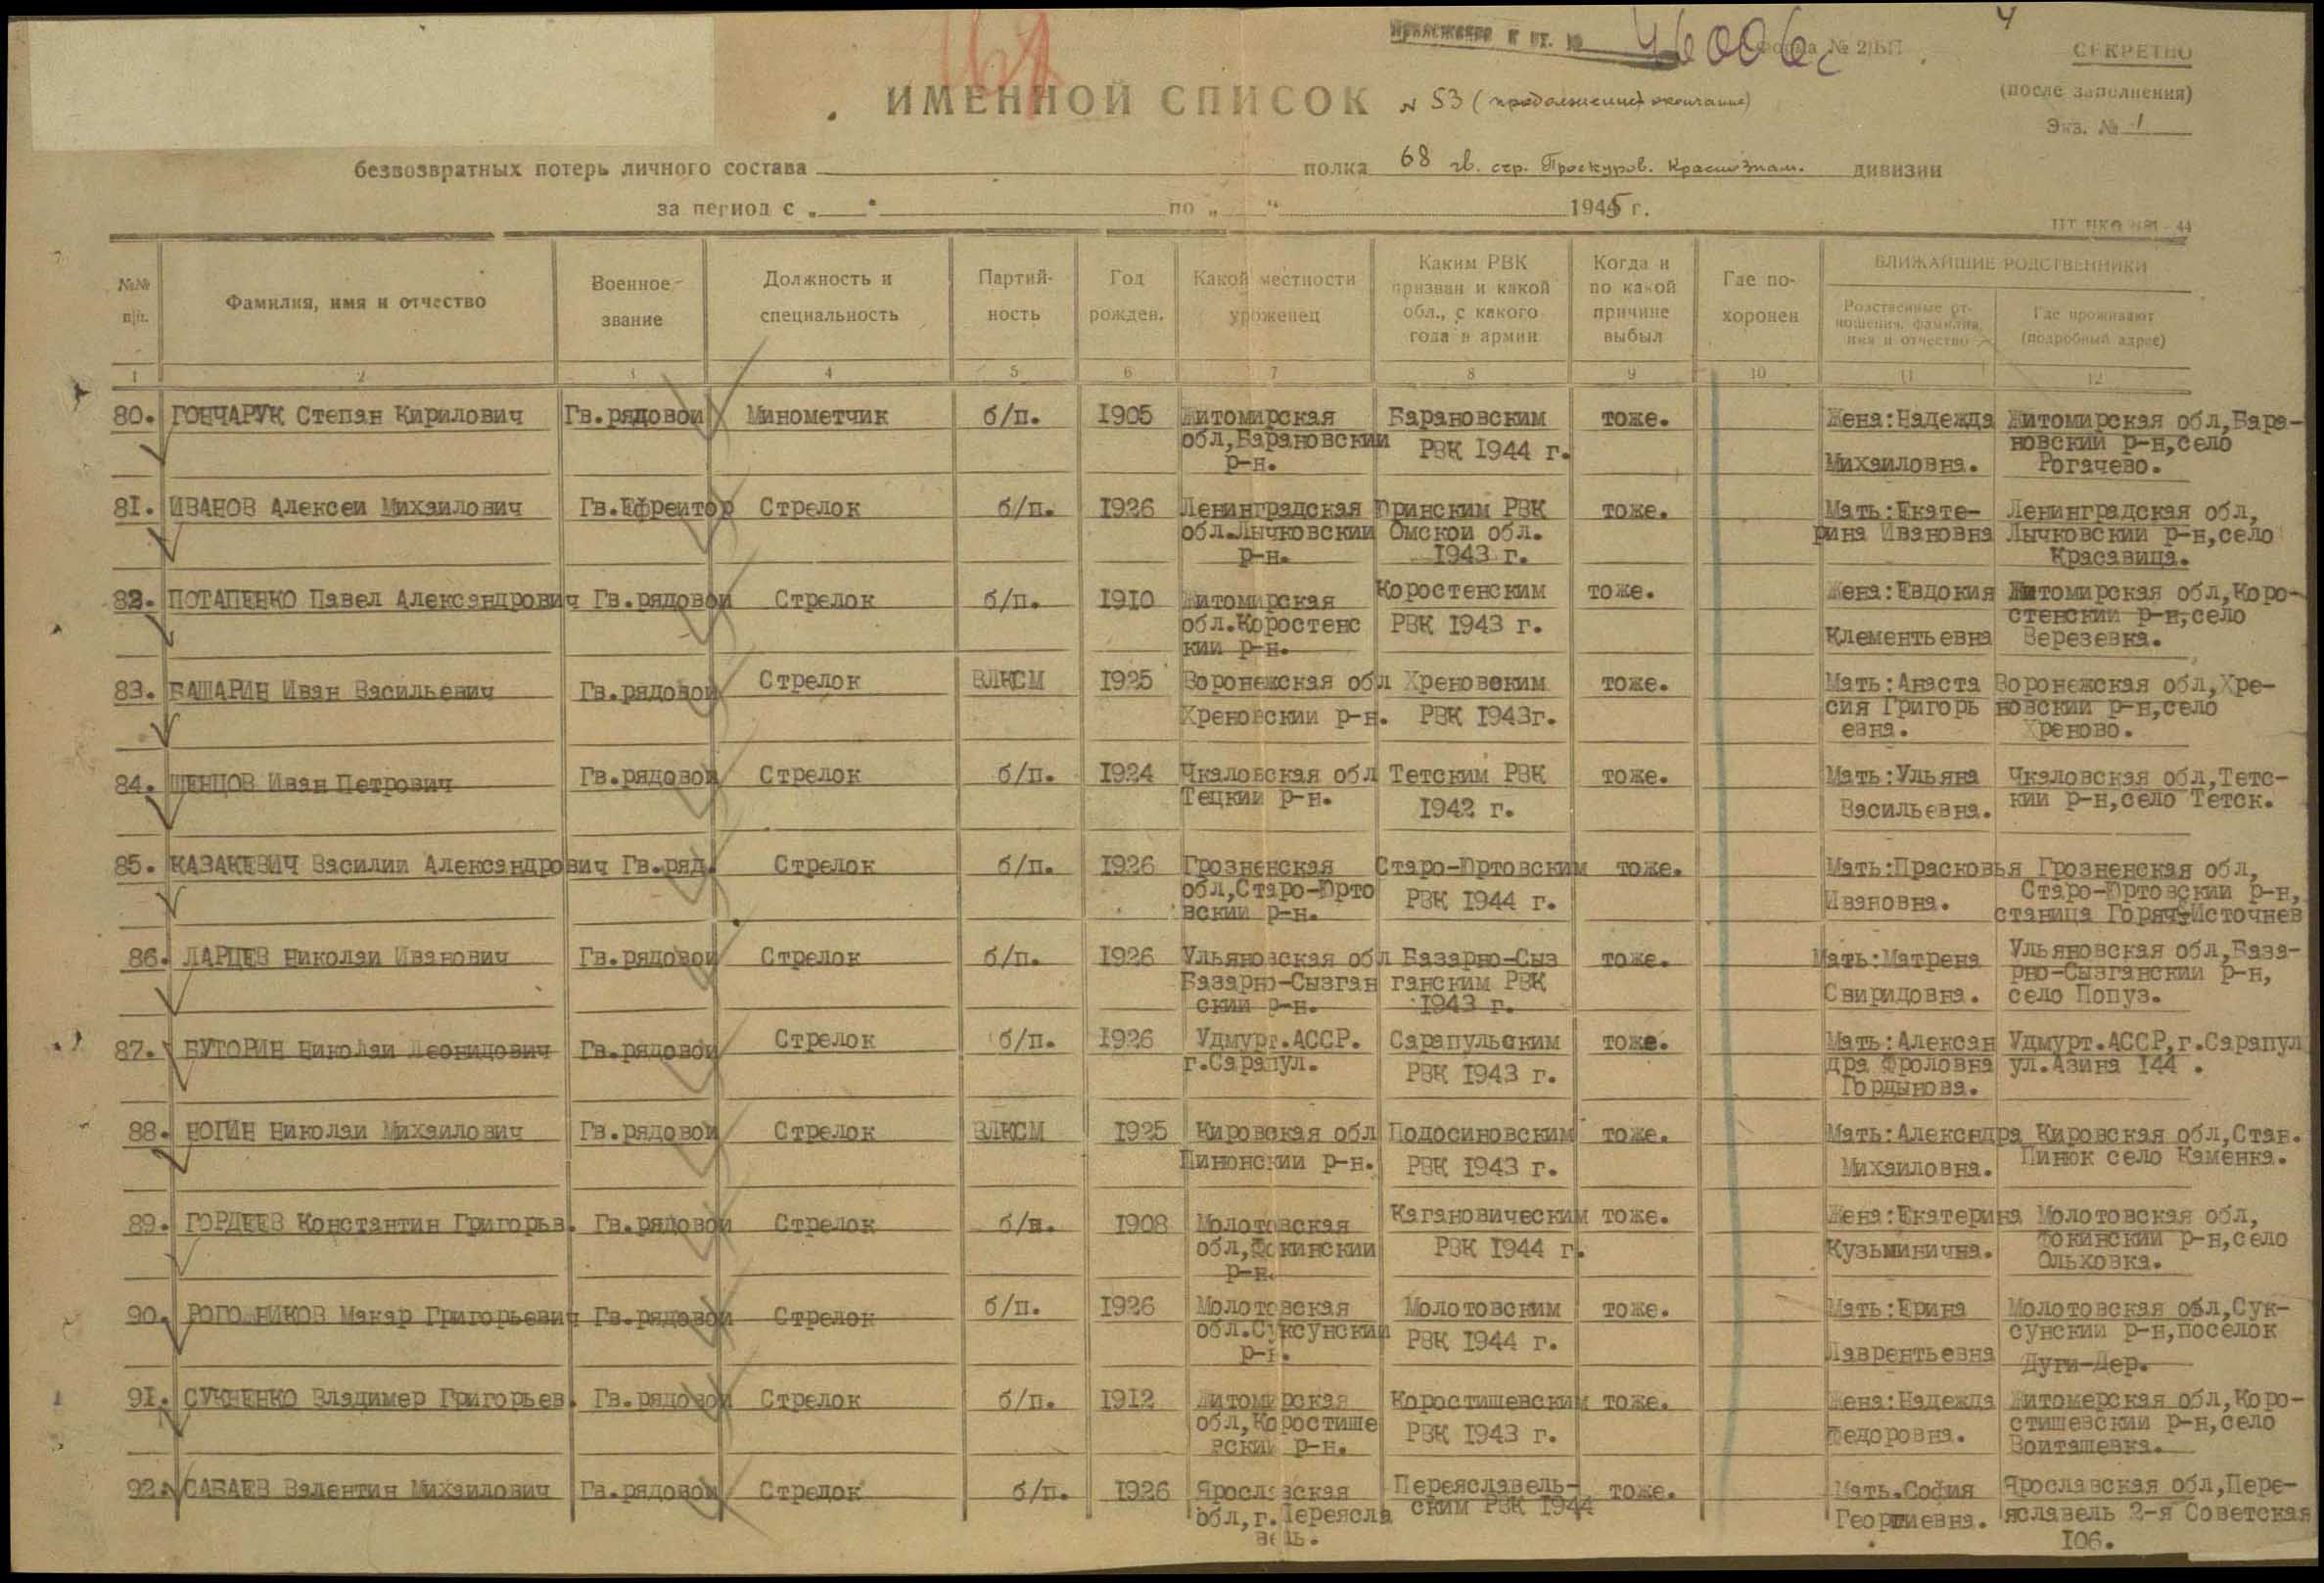 4
Приложение к вх. № 46006с
Форма № 2/БП
СЕКРЕТНО
(после заполнения)
Экз. № 1
ИМЕННОЙ СПИСОК № 53 (продолжение и окончание)
безвозвратных потерь личного состава полка 68 гв. стр. Проскуров. Краснознам. дивизии
за период с „ “ по „ “ 1945 г.
№№ п/п.
Фамилия, имя и отчество
Военное звание
Должность и специальность
Партий-
ность
Год рожден.
Какой местности уроженец
Каким РВК
призван и какой
обл., с какого
года в армии
Когда и
по какой
причине
выбыл
Где по-
хоронен
БЛИЖАЙШИЕ РОДСТВЕННИКИ
Родственные от-
ношения, фамилия,
имя и отчество
Где проживают
(подробный адрес)
1 2 3 4 5 6 7 8 9 10 11 12
80. ГОНЧАРУК Степан Кирилович Гв.рядовой Минометчик б/п. 1905 Житомирская Барановским тоже. Жена:Надежда Житомирская обл,Бара-
обл,Барановский РВК 1944 г. новский р-н,село
р-н. Михаиловна. Рогачево.
81. ИВАНОВ Алексей Михаилович Гв.Ефрейтор Стрелок б/п. 1926 Ленинградская Юринским РВК тоже. Мать:Екате- Ленинградская обл,
обл.Лычковский Омской обл. рина Ивановна Лычковский р-н,село
р-н. 1943 г. Красавица.
82. ПОТАПЕНКО Павел Александрович Гв.рядовой Стрелок б/п. 1910 Житомирская Коростенским тоже. Жена:Евдокия Житомирская обл,Коро-
обл.Коростенс РВК 1943 г. стенский р-н,село
кий р-н. Клементьевна Березевка.
83. БАШАРИН Иван Васильевич Гв.рядовой Стрелок ВЛКСМ 1925 Воронежская обл Хреновским тоже. Мать:Анаста Воронежская обл,Хре-
Хреновский р-н. РВК 1943г. сия Григорь новский р-н,село
евна. Хреново.
84. ШЕНЦОВ Иван Петрович Гв.рядовой Стрелок б/п. 1924 Чкаловская обл Тетским РВК тоже. Мать:Ульяна Чкаловская обл,Тетс-
Тецкий р-н. 1942 г. Васильевна. кий р-н,село Тетск.
85. КАЗАКЕВИЧ Василий Александрович Гв.ряд. Стрелок б/п. 1926 Грозненская Старо-Юртовским тоже. Мать:Прасковья Грозненская обл,
обл,Старо-Юрто РВК 1944 г. Ивановна. Старо-Юртовский р-н,
вский р-н. станица Горяч-Источнев
86. ЛАРЦЕВ Николай Иванович Гв.рядовой Стрелок б/п. 1926 Ульяновская обл Базарно-Сыз тоже. Мать:Матрена Ульяновская обл,База-
Базарно-Сызган ганским РВК рно-Сызганский р-н,
ский р-н. 1943 г. Свиридовна. село Попуз.
87. БУТОРИН Николай Леонидович Гв.рядовой Стрелок б/п. 1926 Удмурт.АССР. Сарапульским тоже. Мать:Алексан Удмурт.АССР,г.Сарапул
г.Сарапул. РВК 1943 г. дра Фроловна ул.Азина 144 .
Гордынова.
88. НОГИН Николай Михаилович Гв.рядовой Стрелок ВЛКСМ 1925 Кировская обл Подосиновским тоже. Мать:Александра Кировская обл,Стан.
Пинюнский р-н. РВК 1943 г. Михаиловна. Пинюк село Каменка.
89. ГОРДЕЕВ Константин Григорьв. Гв.рядовой Стрелок б/п. 1908 Молотовская Кагановическим тоже. Жена:Екатерина Молотовская обл,
обл,Фокинский РВК 1944 г. Кузьминична. Фокинский р-н,село
р-н. Ольховка.
90. РОГОЖНИКОВ Макар Григорьевич Гв.рядовой Стрелок б/п. 1926 Молотовская Молотовским тоже. Мать:Ерина Молотовская обл,Сук-
обл.Суксунский РВК 1944 г. сунский р-н,поселок
р-н. Лаврентьевна Дуги-Дер.
91. СУКНЕНКО Владимер Григорьев. Гв.рядовой Стрелок б/п. 1912 Житомирская Коростишевским тоже. Жена:Надежда Житомерская обл,Коро-
обл,Коростише РВК 1943 г. Федоровна. стишевский р-н,село
вский р-н. Войташевка.
92. САБАЕВ Валентин Михаилович Гв.рядовой Стрелок б/п. 1926 Ярославская Переяславель- тоже. Мать.София Ярославская обл,Пере-
обл,г.Переясла ским РВК 1944 Георгиевна. яславель 2-я Советская
вель. 106.